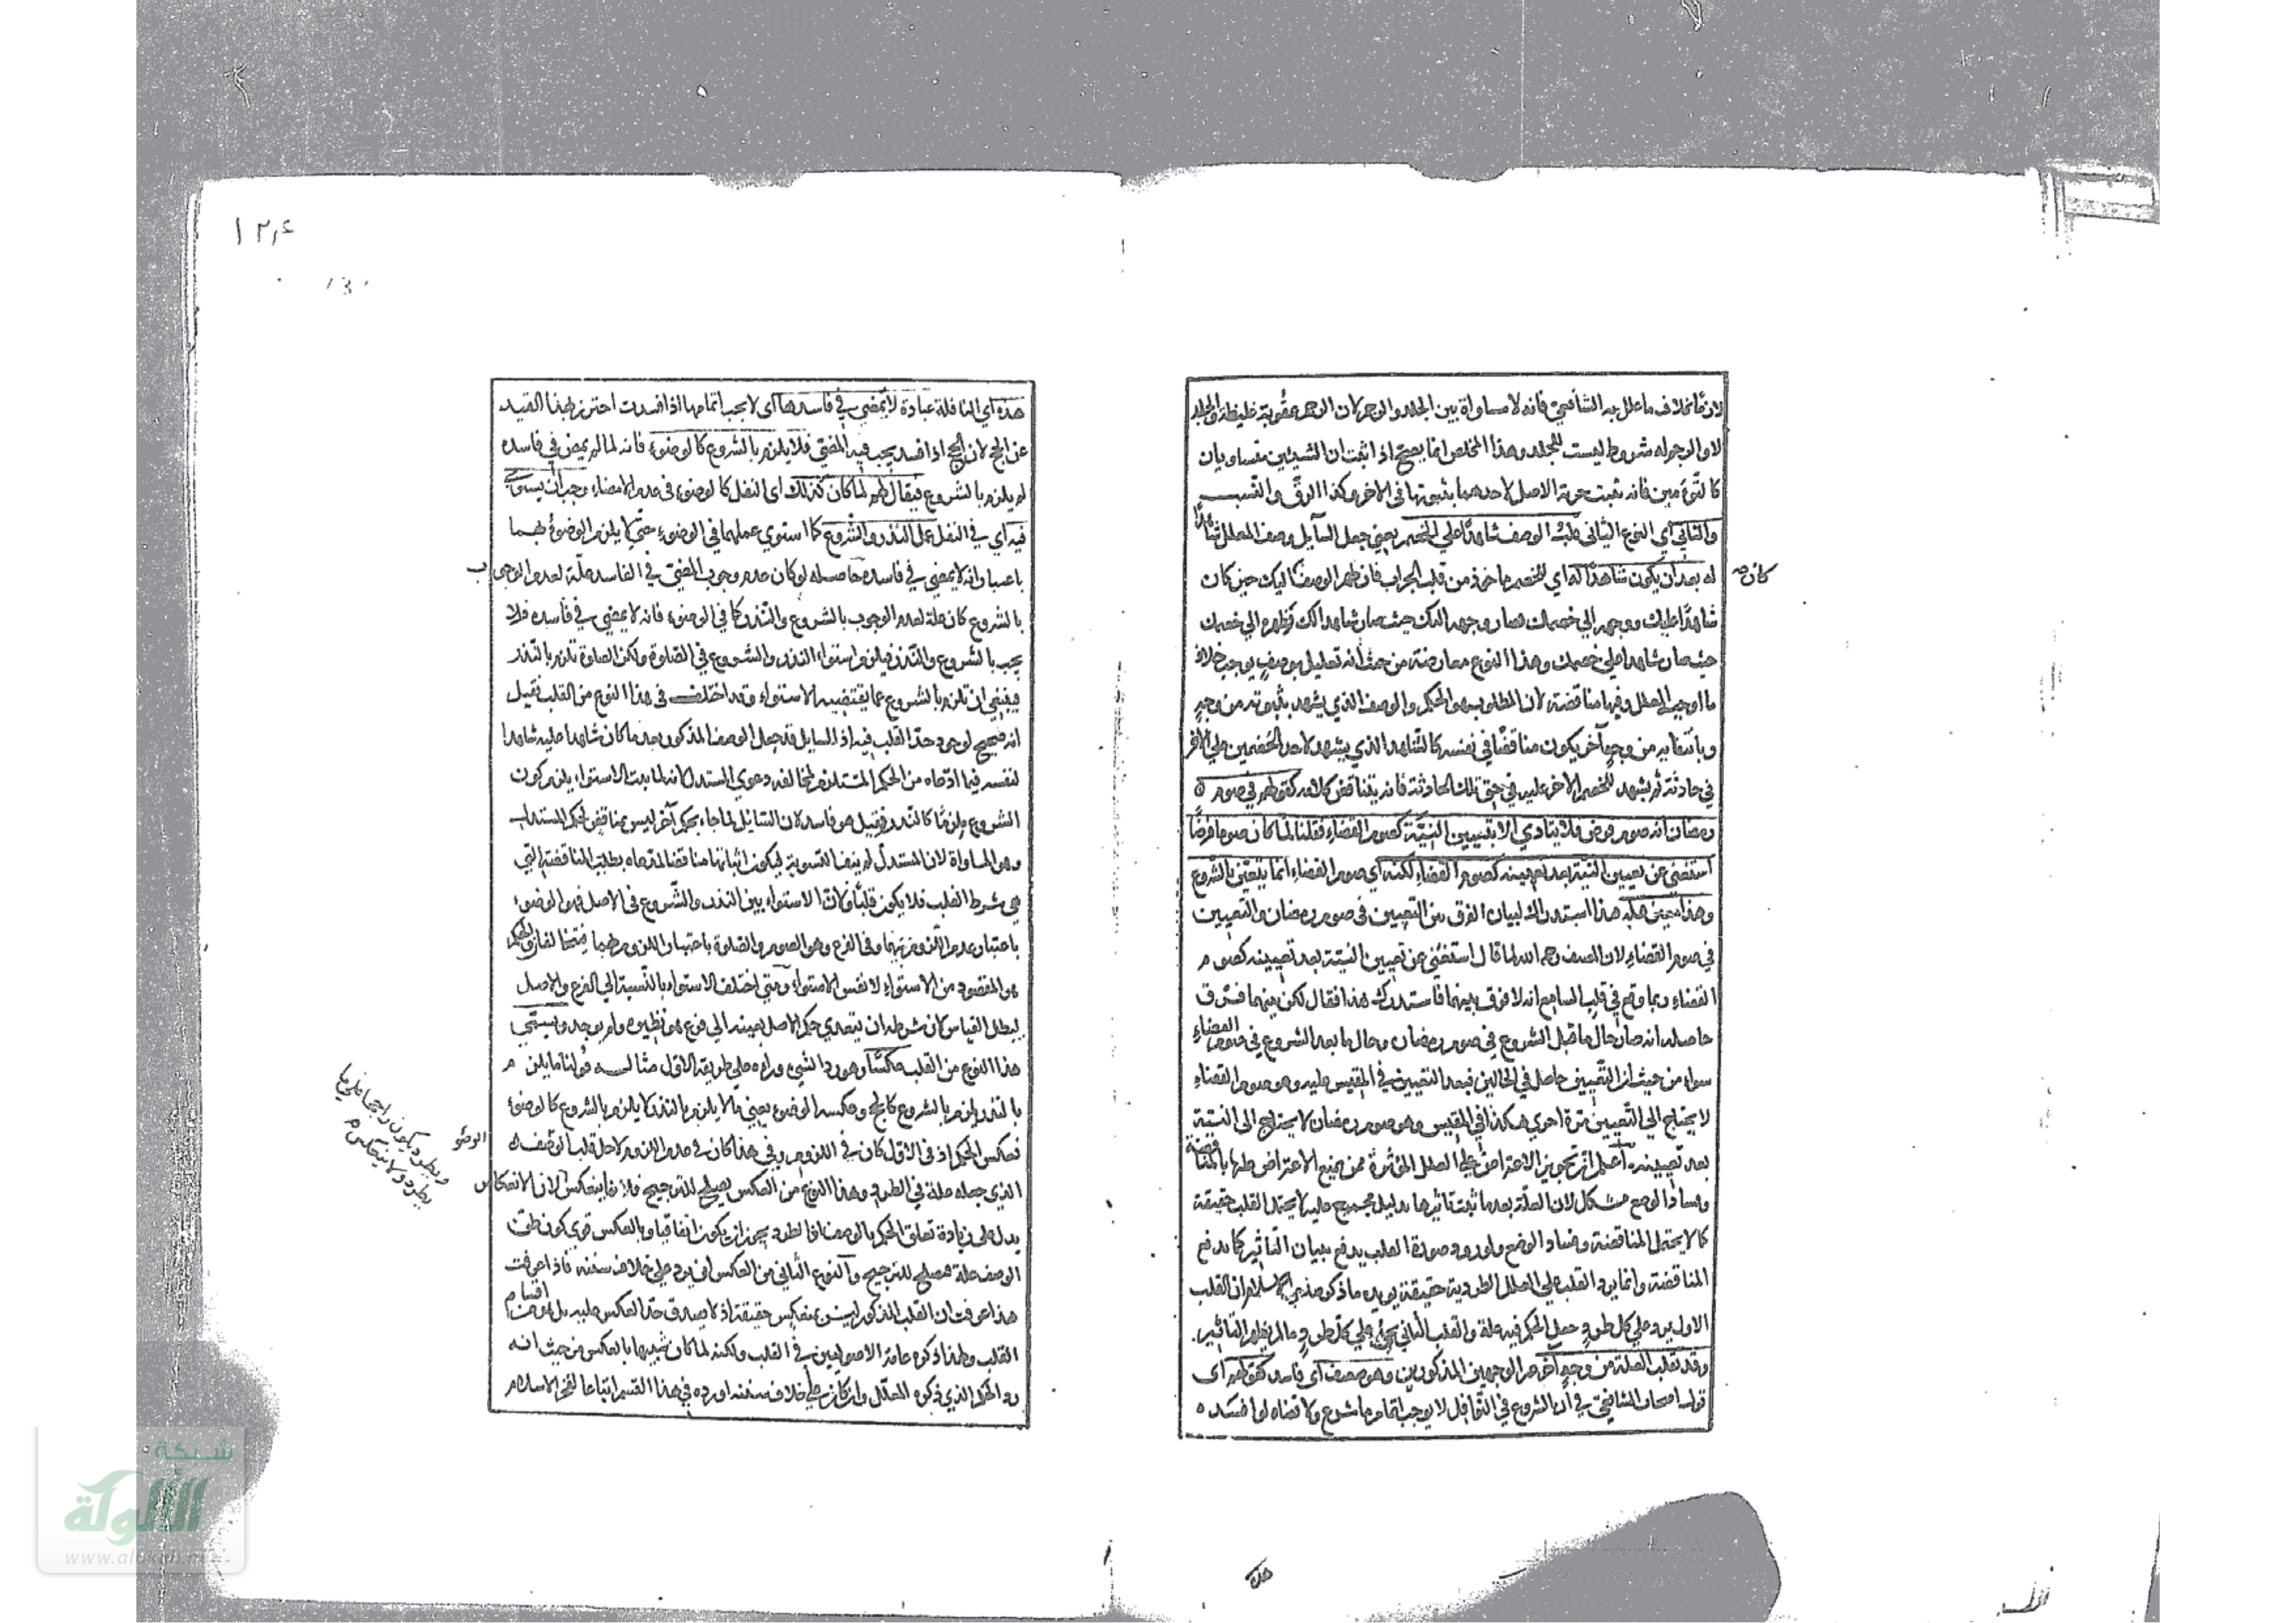 لازما بخلاف ما علل به الشافعي فانه لا مساواة بين الجلد والرجم لان الرجم عقوبة غليظة والجلد
لا والرجم له شروط ليست للجلد وهذا المخلص انما يصح اذا ثبت ان الشيئين متساويان
كالتوءمين فانه يثبت حرية الاصل لاحدهما بثبوتها في الاخر وكذا الرق والنسب
والثاني اي النوع الثاني قلب الوصف شاهدا على الخصم يعني جعل السايل وصف المعلل شاهدا
له بعد ان يكون شاهدا له اي للخصم ماخوذ من قلب الجراب فان ظهر الوصف اليك حين كان
كان
شاهدا عليك ووجهه الي خصمك فصار وجهه اليك حيث صار شاهدا لك وظهره الي خصمك
حيث صار شاهدا على خصمك وهذا النوع معارضة من حيث انه تعليل بوصف يوجب خلاف
ما اوجب المعلل وفيها مناقضة لان المطلوب هو الحكم والوصف الذي يشهد بثبوته من وجه
وبانتفايه من وجه آخر يكون مناقضا في نفسه كالشاهد الذي يشهد لاحد الخصمين على الاخر
في حادثة ثم يشهد للخصم الاخر عليه في حق تلك الحادثة فانه يتناقض كلامه كقولهم في صوم
رمضان انه صوم فرض فلا يتادي الا بتعيين النية كصوم القضاء فقلنا لما كان صوما فرضا
استغني عن تعيين النية بعد تعيينه كصوم القضاء لكنه اي صوم القضاء انما يتعين بالشروع
وهذا تعين قبله هذا استدراك لبيان الفرق بين التعيين في صوم رمضان والتعيين
في صوم القضاء لان المصنف رحمه الله لما قال استغني عن تعيين النية بعد تعيينه كصوم
القضاء ربما وقع في قلب السامع انه لا فرق بينهما فاستدرك هذا فقال لكن بينهما فرق
حاصله انه صار حال ما قبل الشروع في صوم رمضان وحال ما بعد الشروع في صوم القضاء
سواء من حيث ان التعيين حاصل في الحالين فبعد التعيين في المقيس عليه وهو صوم القضاء
لا يحتاج الي التعيين مرة اخري هكذا في المقيس وهو صوم رمضان لا يحتاج الى النية
بعد تعيينه اعلم ان تجويز الاعتراض على العلل المؤثرة ممن يمنع الاعتراض عليها بالمناقضة
وفساد الوضع مشكل لان العلة بعد ما ثبت تاثيرها بدليل مجمع عليه لا يحتمل القلب حقيقة
كما لا يحتمل المناقضة وفساد الوضع ولو ورد صورة القلب يدفع ببيان التاثير كما يدفع
المناقضة وانما يرد القلب على العلل الطردية حقيقة يويده ما ذكر ان القلب
الاول يرد على كل طرد جعل الحكم فيه علة والقلب الثاني يجئ على كل طرد ما لم يظهر التاثير
وقد تقلب العلة من وجه آخر غير الوجهين المذكورين وهو ضعيف اي فاسد كقولهم اى
قول اصحاب الشافعي في ان الشروع في النوافل لا يوجب اتمام ما شرع ولا قضاه لو افسده
هذه
هذه اي النافلة عبادة لا يمضي في فاسدها اي لا يجب اتمامها اذا فسدت احترز بهذا القيد
عن الحج لان الحج اذا فسد يجب فيه المضي فلا يلزم بالشروع كالوضوء فانه لما لم يمض في فاسده
لم يلزم بالشروع فيقال لهم لما كان كذلك اي النفل كالوضوء في عدم الامضاء وجب ان يستوي
فيه اي في النفل عمل النذر والشروع كما استوي عملهما في الوضوء حتى لا يلزم الوضوء بهما
باعتبار انه لا يمضي في فاسده حاصله لو كان عدم وجوب المضي في الفاسد علة لعدم الوجوب
بالشروع كان علة لعدم الوجوب بالشروع والنذر كما في الوضوء فانه لا يمضي في فاسده فلا
يجب بالشروع والنذر فيلزم استواء النذر والشروع في الصلوة ولكن الصلوة تلزم بالنذر
فينبغي ان تلزم بالشروع عما يقتضيه الاستواء وقد اختلف في هذا النوع من القلب فقيل
انه صحيح لوجود حد القلب فيه اذ السايل قد جعل الوصف المذكور بعد ما كان شاهدا عليه شاهدا
لنفسه فيما ادعاه من الحكم المستلزم لمخالفة دعوي المستدل لانه لما ثبت الاستواء يلزم كون
الشروع ملزما كالنذر وقيل هو فاسد لان السايل لما جاء بحكم آخر ليس بمناقض لحكم المستدل
وهو المساواة لان المستدل لم ينف التسوية ليكون اثباتها مناقضا لمدعاه بطلت المناقضة التي
هي شرط القلب فلا يكون قلبا وكان الاستواء بين النذر والشروع في الاصل وهو الوضوء
باعتبار عدم اللزوم بهما وفي الفرع وهو الصوم والصلوة باعتبار اللزوم بهما فيتخالفان والحكم
هو المقصود من الاستواء لا نفس الاستواء ومتي اختلف الاستواء بالنسبة الي الفرع والاصل
يبطل القياس لان شرطه ان يتعدي حكم الاصل بعينه الي فرع هو نظيره ولم يوجد ويسمي
هذا النوع من القلب عكسا وهو رد الشئ وراءه على طريقه الاول مثاله قولنا ما يلزم
بالنذر يلزم بالشروع كالحج وعكسه الوضوء يعني ما لا يلزم بالنذر لا يلزم بالشروع كالوضوء
الوضو
فعكس الحكم اذ في الاول كان في اللزوم وفي هذا كان في عدم اللزوم لاجل قلب الوصف
الذي جعله علة في الطرد وهذا النوع من العكس يصلح للترجيح لان الانعكاس
ويطرد يكون راجحا على ما
يطرد ولا ينعكس م
يدل على زيادة تعلق الحكم بالوصف اذ الطرد يجوز ان يكون اتفاقيا وبالعكس قوي كون
الوصف علة فصلح للترجيح والنوع الثاني من العكس ان يرد على خلاف سننه فاذا عرفت
هذا عرفت ان القلب المذكور ليس بعكس حقيقة اذ لا يصدق حد العكس عليه بل هو من اقسام
القلب ولهذا ذكره عامة الاصوليين في القلب ولكنه لما كان شبيها بالعكس من حيث انه
رد الحكم الذي ذكره المعلل وان كان على خلاف سننه اورده في هذا القسم اتباعا لفخر الاسلام
شبكة
الألوكة
www.alukah.net